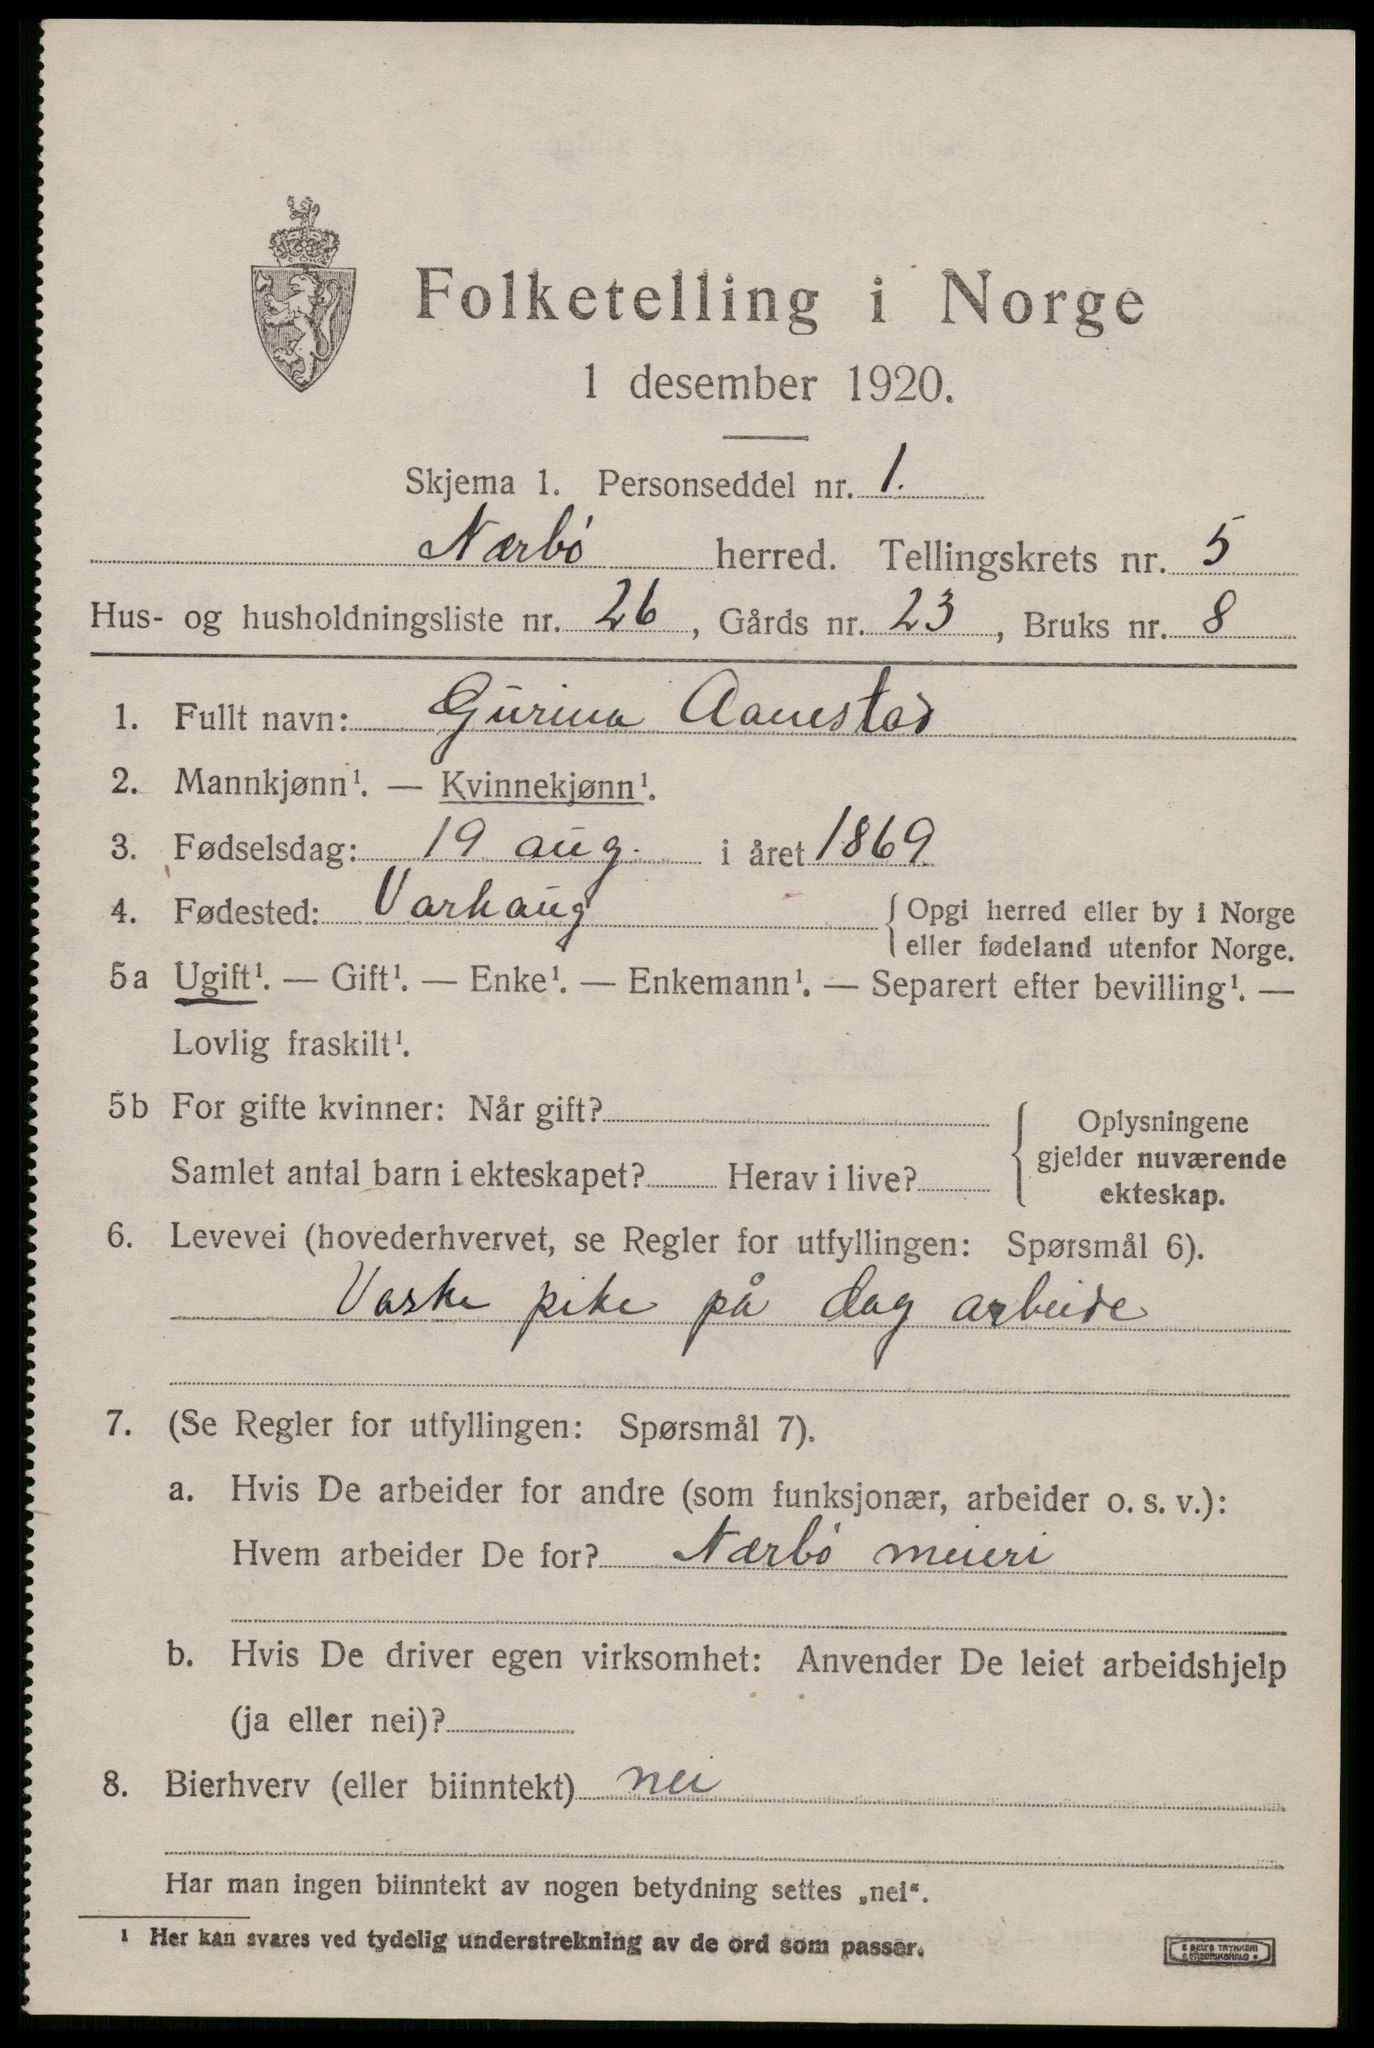 Folketelling i Norge
1 desember 1920.
Skjema 1. Personseddel nr. 1.
Nærbó herred. Tellingskrets nr. 5
Hus- og husholdningsliste nr. 26, Gårds nr. 23, Bruks nr. 8
1. Fullt navn: Gurina Aanestad
2. Mannkjønn¹. — Kvinnekjønn¹.
3. Fødselsdag: 19 aug. i året 1869
4. Fødested: Varhaug { Opgi herred eller by i Norge
eller fødeland utenfor Norge.
5a Ugift¹. — Gift¹. — Enke¹. — Enkemann¹. — Separert efter bevilling¹. —
Lovlig fraskilt¹.
5b For gifte kvinner: Når gift?
Samlet antal barn i ekteskapet? Herav i live?
{ Oplysningene
gjelder nuværende
ekteskap.
6. Levevei (hovederhvervet, se Regler for utfyllingen: Spørsmål 6).
Vaske pike på dag arbeide
7. (Se Regler for utfyllingen: Spørsmål 7).
a. Hvis De arbeider for andre (som funksjonær, arbeider o. s. v.):
Hvem arbeider De for? Nærbó meieri
b. Hvis De driver egen virksomhet: Anvender De leiet arbeidshjelp
(ja eller nei)?
8. Bierhverv (eller biinntekt) nei
Har man ingen biinntekt av nogen betydning settes „nei“.
¹ Her kan svares ved tydelig understrekning av de ord som passer.
E SEM'S TRYKKERI
FREDRIKSHALD